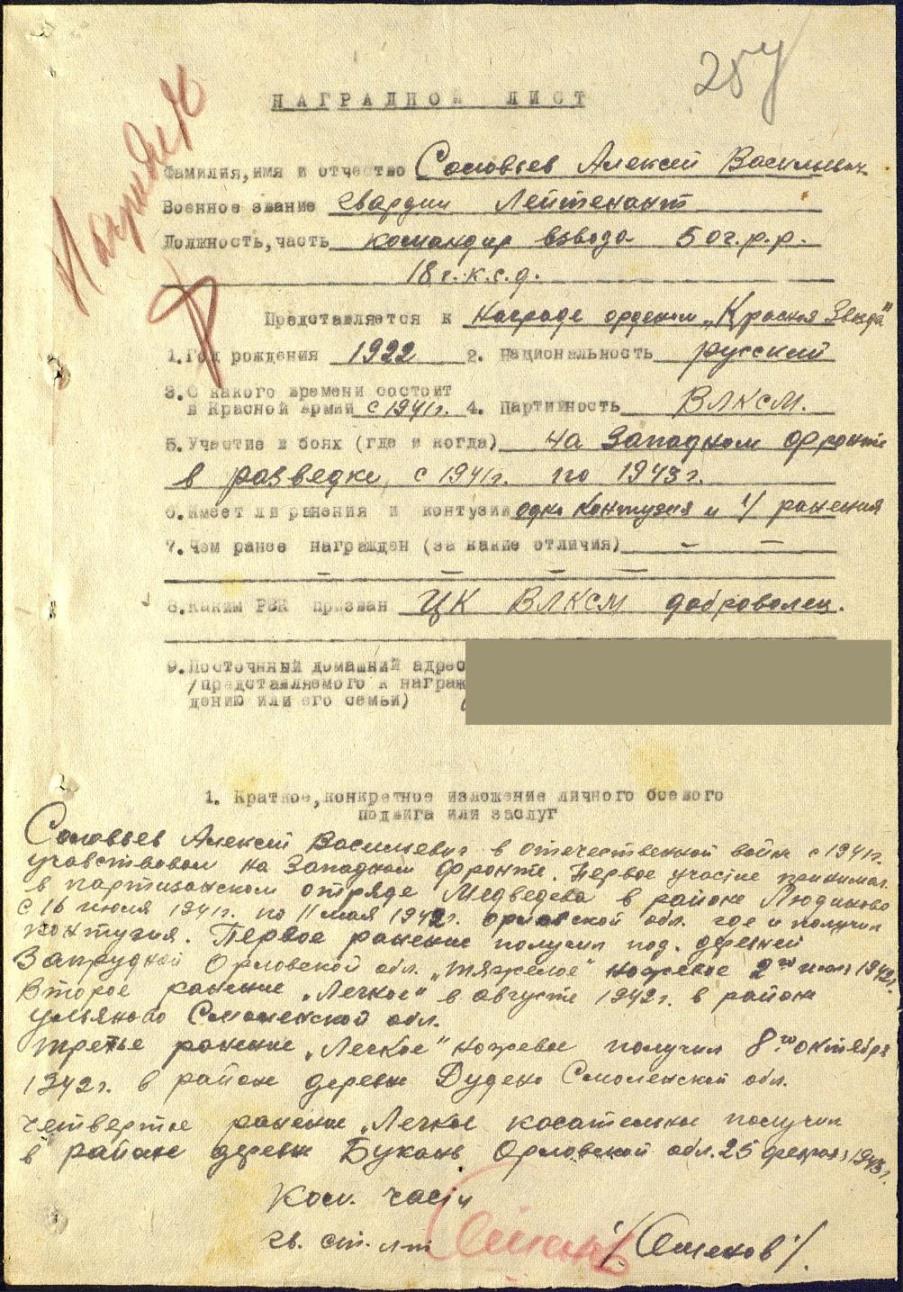 257
НАГРАДНОЙ ЛИСТ
Фамилия,имя и отчество Соловьев Алексей Васильевич
Военное звание гвардии Лейтенант
Должность,часть командир взвода 5 ог.р.р.
18 г.к.с.д.
Представляется к награде орденом „Красная Звезда"
1.Год рождения 1922 2. Национальность русский
3.С какого времени состоит
в Красной армии с 1941г. 4. Партийность ВЛКСМ.
5.Участие в боях (где и когда) на Западном фронте
в разведке, с 1941г. по 1943г.
6.Имеет ли ранения и контузии одна контузия и 4 ранения
7.Чем ранее награжден (за какие отличия) – –
– – – –
8.Каким РВК призван ЦК ВЛКСМ доброволец.
9.Постоянный домашний адрес
/представляемого к награж
дению или его семьи)
1. Краткое,конкретное изложение личного боевого
подвига или заслуг
Соловьев Алексей Васильевич в отечественной войне с 1941г.
участвовал на Западном фронте. Первое участие принимал
в партизанском отряде Медведева в районе Людиново
с 16 июля 1941г. по 11 мая 1942г. орловской обл. где и получил
контузия. Первое ранение получил под. деревней
Запрудной Орловской обл. „тяжелое" 1942г.
Второе ранение „Легкое" в августе 1942г. в районе
ульяново Смоленской обл.
третье ранение „Легкое" получил 8го октября
1942г. в районе деревни Дудено Смоленской обл.
четвертое ранение „Легкое касательное получил
в районе деревни Букань Орловской обл. 25 февраля 1943г.
Ком. части
гв. ст. л-т /Семенов/